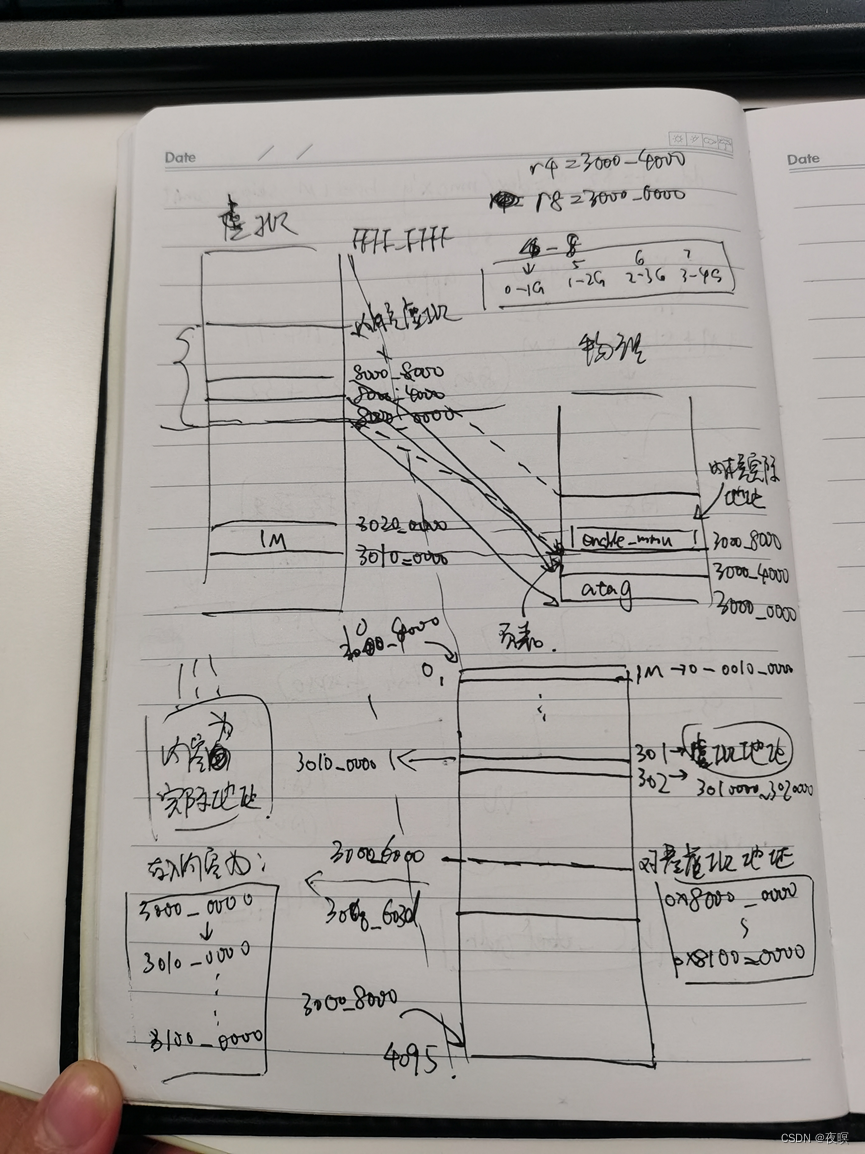 Date / /
Date
r4 = 3000_4000
r8 = 3000_0000
虚拟
FFFF_FFFF
4 5 6 7
0-1G 1-2G 2-3G 3-4G
内核虚拟
物理
8000_8000
8000_4000
8000_0000
内核实际
地址
3020_0000
1M
3010_0000
enable_mmu
3000_8000
3000_4000
atag
3000_0000
3000_4000
页表
0
1M→0-0010_0000
内容为
实际地址
3010_0000
301→虚拟地址
302→
3010000~3020000
3000_6000
对应虚拟地址
存入内容为:
0x8000_0000
3000_0000
0x8100_0000
3010_0000
3000_8000
3100_0000
4095
CSDN @夜暝